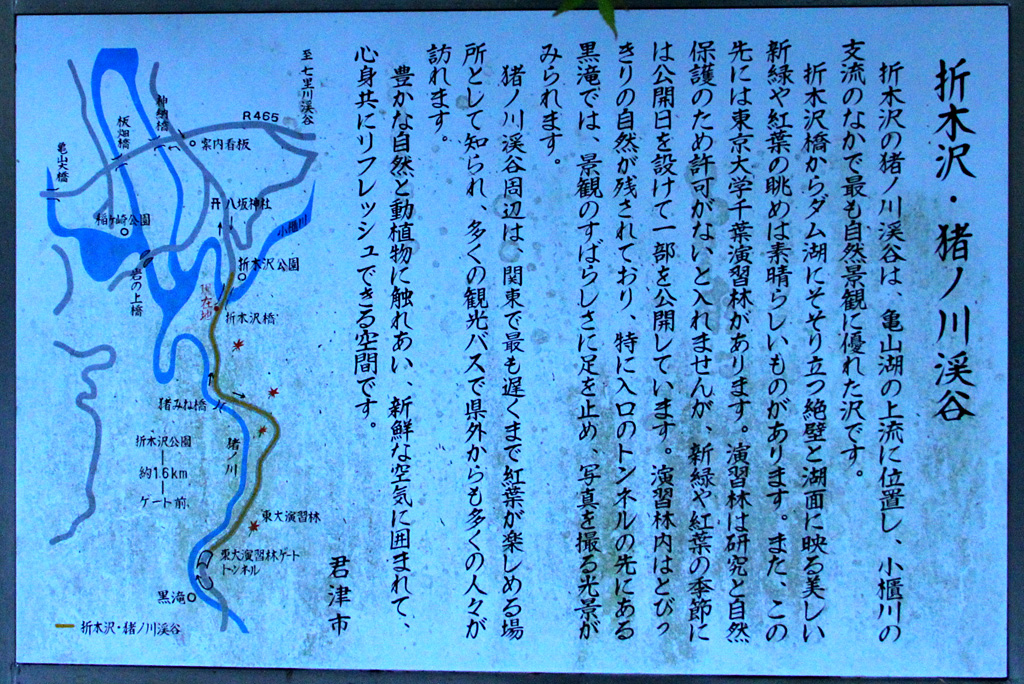 折木沢・猪ノ川渓谷
折木沢の猪ノ川渓谷は、亀山湖の上流に位置し、小櫃川の
支流のなかで最も自然景観に優れた沢です。
折木沢橋からダム湖にそそり立つ絶壁と湖面に映る美しい
新緑や紅葉の眺めは素晴らしいものがあります。また、この
先には東京大学千葉演習林があります。演習林は研究と自然
保護のため許可がないと入れませんが、新緑や紅葉の季節に
は公開日を設けて一部を公開しています。演習林内はとびっ
きりの自然が残されており、特に入口のトンネルの先にある
黒滝では、景観のすばらしさに足を止め、写真を撮る光景が
みられます。
猪ノ川渓谷周辺は、関東で最も遅くまで紅葉が楽しめる場
所として知られ、多くの観光バスで県外からも多くの人々が
訪れます。
豊かな自然と動植物に触れあい、新鮮な空気に囲まれて、
心身共にリフレッシュできる空間です。
君津市
至七里川渓谷
R465
案内看板
板畑橋
亀山大橋
稲ヶ崎公園
八坂神社
小櫃川
岩の上橋
折木沢公園
現在地
折木沢橋
猪みね橋
猪ノ川
折木沢公園
約1.6km
ゲート前
東大演習林
東大演習林ゲート
トンネル
黒滝
折木沢・猪ノ川渓谷